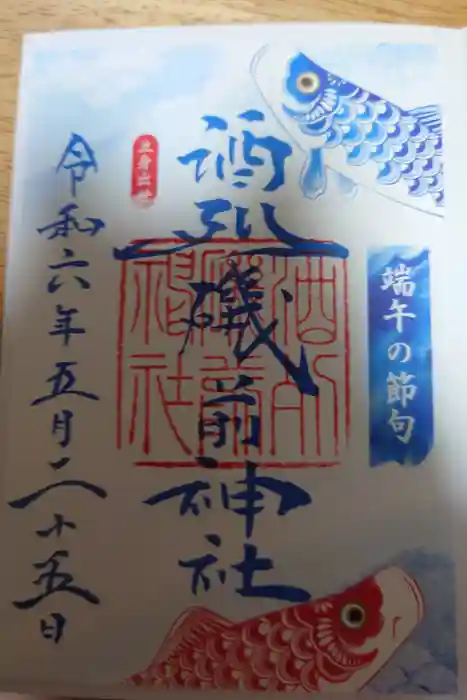 端午の節句
酒列磯前神社
酒列磯前神社
立身出世
令和六年五月二十五日